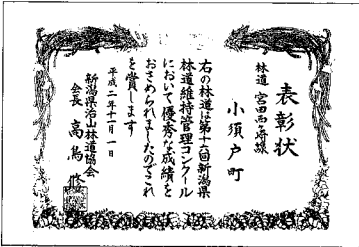 表彰状
林道 宮田西山崎線
小須戸町
右の林道は第十六回新潟県
林道維持管理コンクール
において優秀な成績を
おさめられましたのでこれ
を賞します
平成二年十一月一日
新潟県治山林道協会
会長 高鳥修